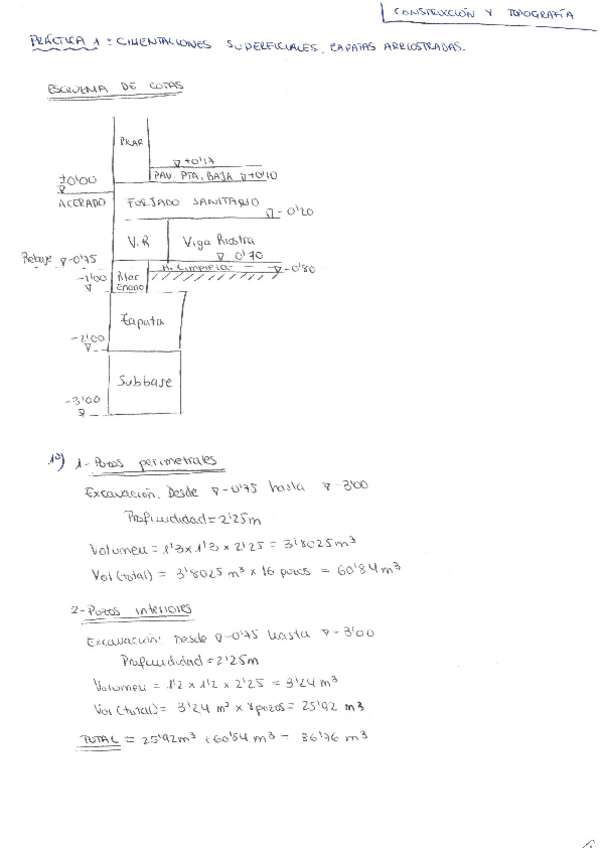 CONSTRUCCIÓN Y TOPOGRAFÍA
PRÁCTICA 1: CIMENTACIONES SUPERFICIALES, ZAPATAS ARRIOSTRADAS.
ESQUEMA DE COTAS
PILAR
+0'17
±0'00
PAV. PTA. BAJA +0'10
ACERADO
FORJADO SANITARIO
-0'20
V.R
Viga Riostra
0'70
Rebaje -0'75
H. Limpieza
-0'80
-1'00
Pilar
Enano
Zapata
-2'00
Subbase
-3'00
1º) 1- Pozos perimetrales
Excavación. Desde -0'75 hasta -3'00
Profundidad = 2'25m
Volumen = 1'3 x 1'3 x 2'25 = 3'8025 m³
Vol (total) = 3'8025 m³ x 16 pozos = 60'84 m³
2- Pozos interiores
Excavación: Desde -0'75 hasta -3'00
Profundidad = 2'25m
Volumen = 1'2 x 1'2 x 2'25 = 3'24 m³
Vol (total) = 3'24 m³ x 8 pozos = 25'92 m3
TOTAL = 25'92 m³ + 60'84 m³ = 86'76 m³